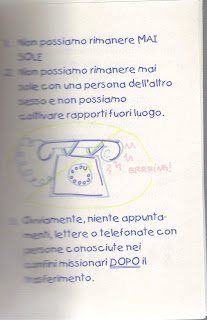 1. Non possiamo rimanere MAI
SOLE
2. Non possiamo rimanere mai
sole con una persona dell'altro
sesso e non possiamo
coltivare rapporti fuori luogo.
DRRRIING!
3. Ovviamente, niente appunta-
menti, lettere o telefonate con
persone conosciute nei
confini missionari DOPO il
trasferimento.